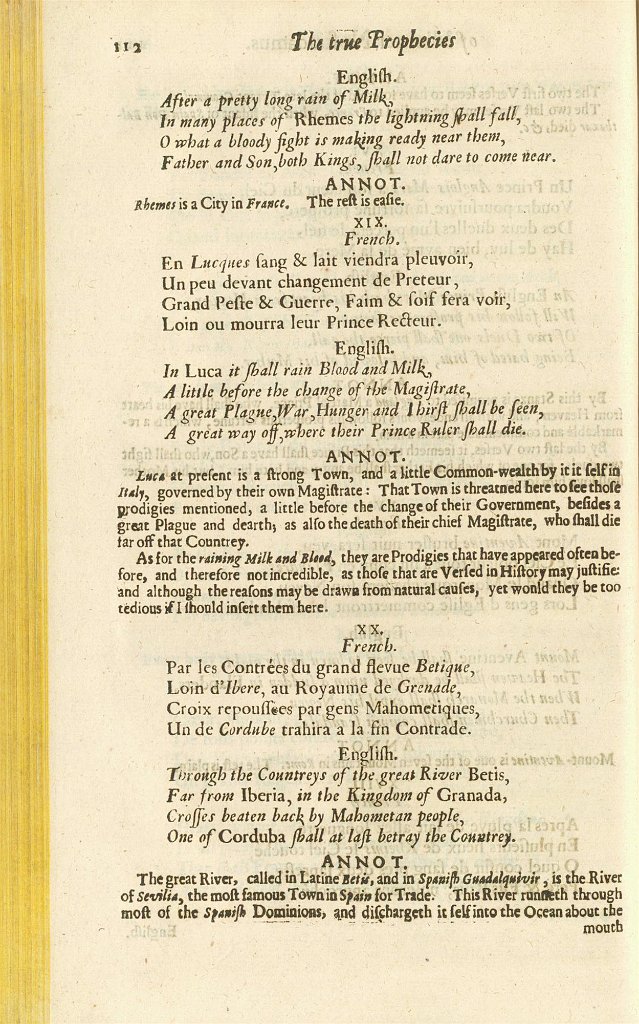 112 The true Prophecies
Engliſh.
After a pretty long rain of Milk,
In many places of Rhemes the lightning ſhall fall,
O what a bloody fight is making ready near them,
Father and Son,both Kings, ſhall not dare to come near.
ANNOT.
Rhemes is a City in France. The reſt is eaſie.
XIX.
French.
En Lucques ſang & lait viendra pleuvoir,
Un peu devant changement de Preteur,
Grand Peſte & Guerre, Faim & ſoif fera voir,
Loin ou mourra leur Prince Recteur.
Engliſh.
In Luca it ſhall rain Blood and Milk,
A little before the change of the Magiſtrate,
A great Plague,War,Hunger and Thirſt ſhall be ſeen,
A great way off,where their Prince Ruler ſhall die.
ANNOT.
Luca at present is a ſtrong Town, and a little Common-wealth by it it ſelf in
Italy, governed by their own Magiſtrate: That Town is threatned here to ſee thoſe
prodigies mentioned, a little before the change of their Government, beſides a
great Plague and dearth; as alſo the death of their chief Magiſtrate, who ſhall die
far off that Countrey.
As for the raining Milk and Blood, they are Prodigies that have appeared often be-
fore, and therefore not incredible, as thoſe that are Verſed in Hiſtory may juſtifie:
and although the reaſons may be drawn from natural cauſes, yet would they be too
tedious if I ſhould inſert them here.
XX.
French.
Par les Contrées du grand fleuve Betique,
Loin d'Ibere, au Royaume de Grenade,
Croix repouſſées par gens Mahometiques,
Un de Cordube trahira a la fin Contrade.
Engliſh.
Through the Countreys of the great River Betis,
Far from Iberia, in the Kingdom of Granada,
Croſſes beaten back by Mahometan people,
One of Corduba ſhall at laſt betray the Countrey.
ANNOT.
The great River, called in Latine Betis, and in Spaniſh Guadalquivir, is the River
of Sevilia, the moſt famous Town in Spain for Trade. This River runneth through
moſt of the Spaniſh Dominions, and diſchargeth it ſelf into the Ocean about the
mouth